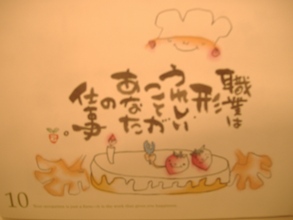 職業は
形
うれしい
ことが
あなた
の
仕事。
10